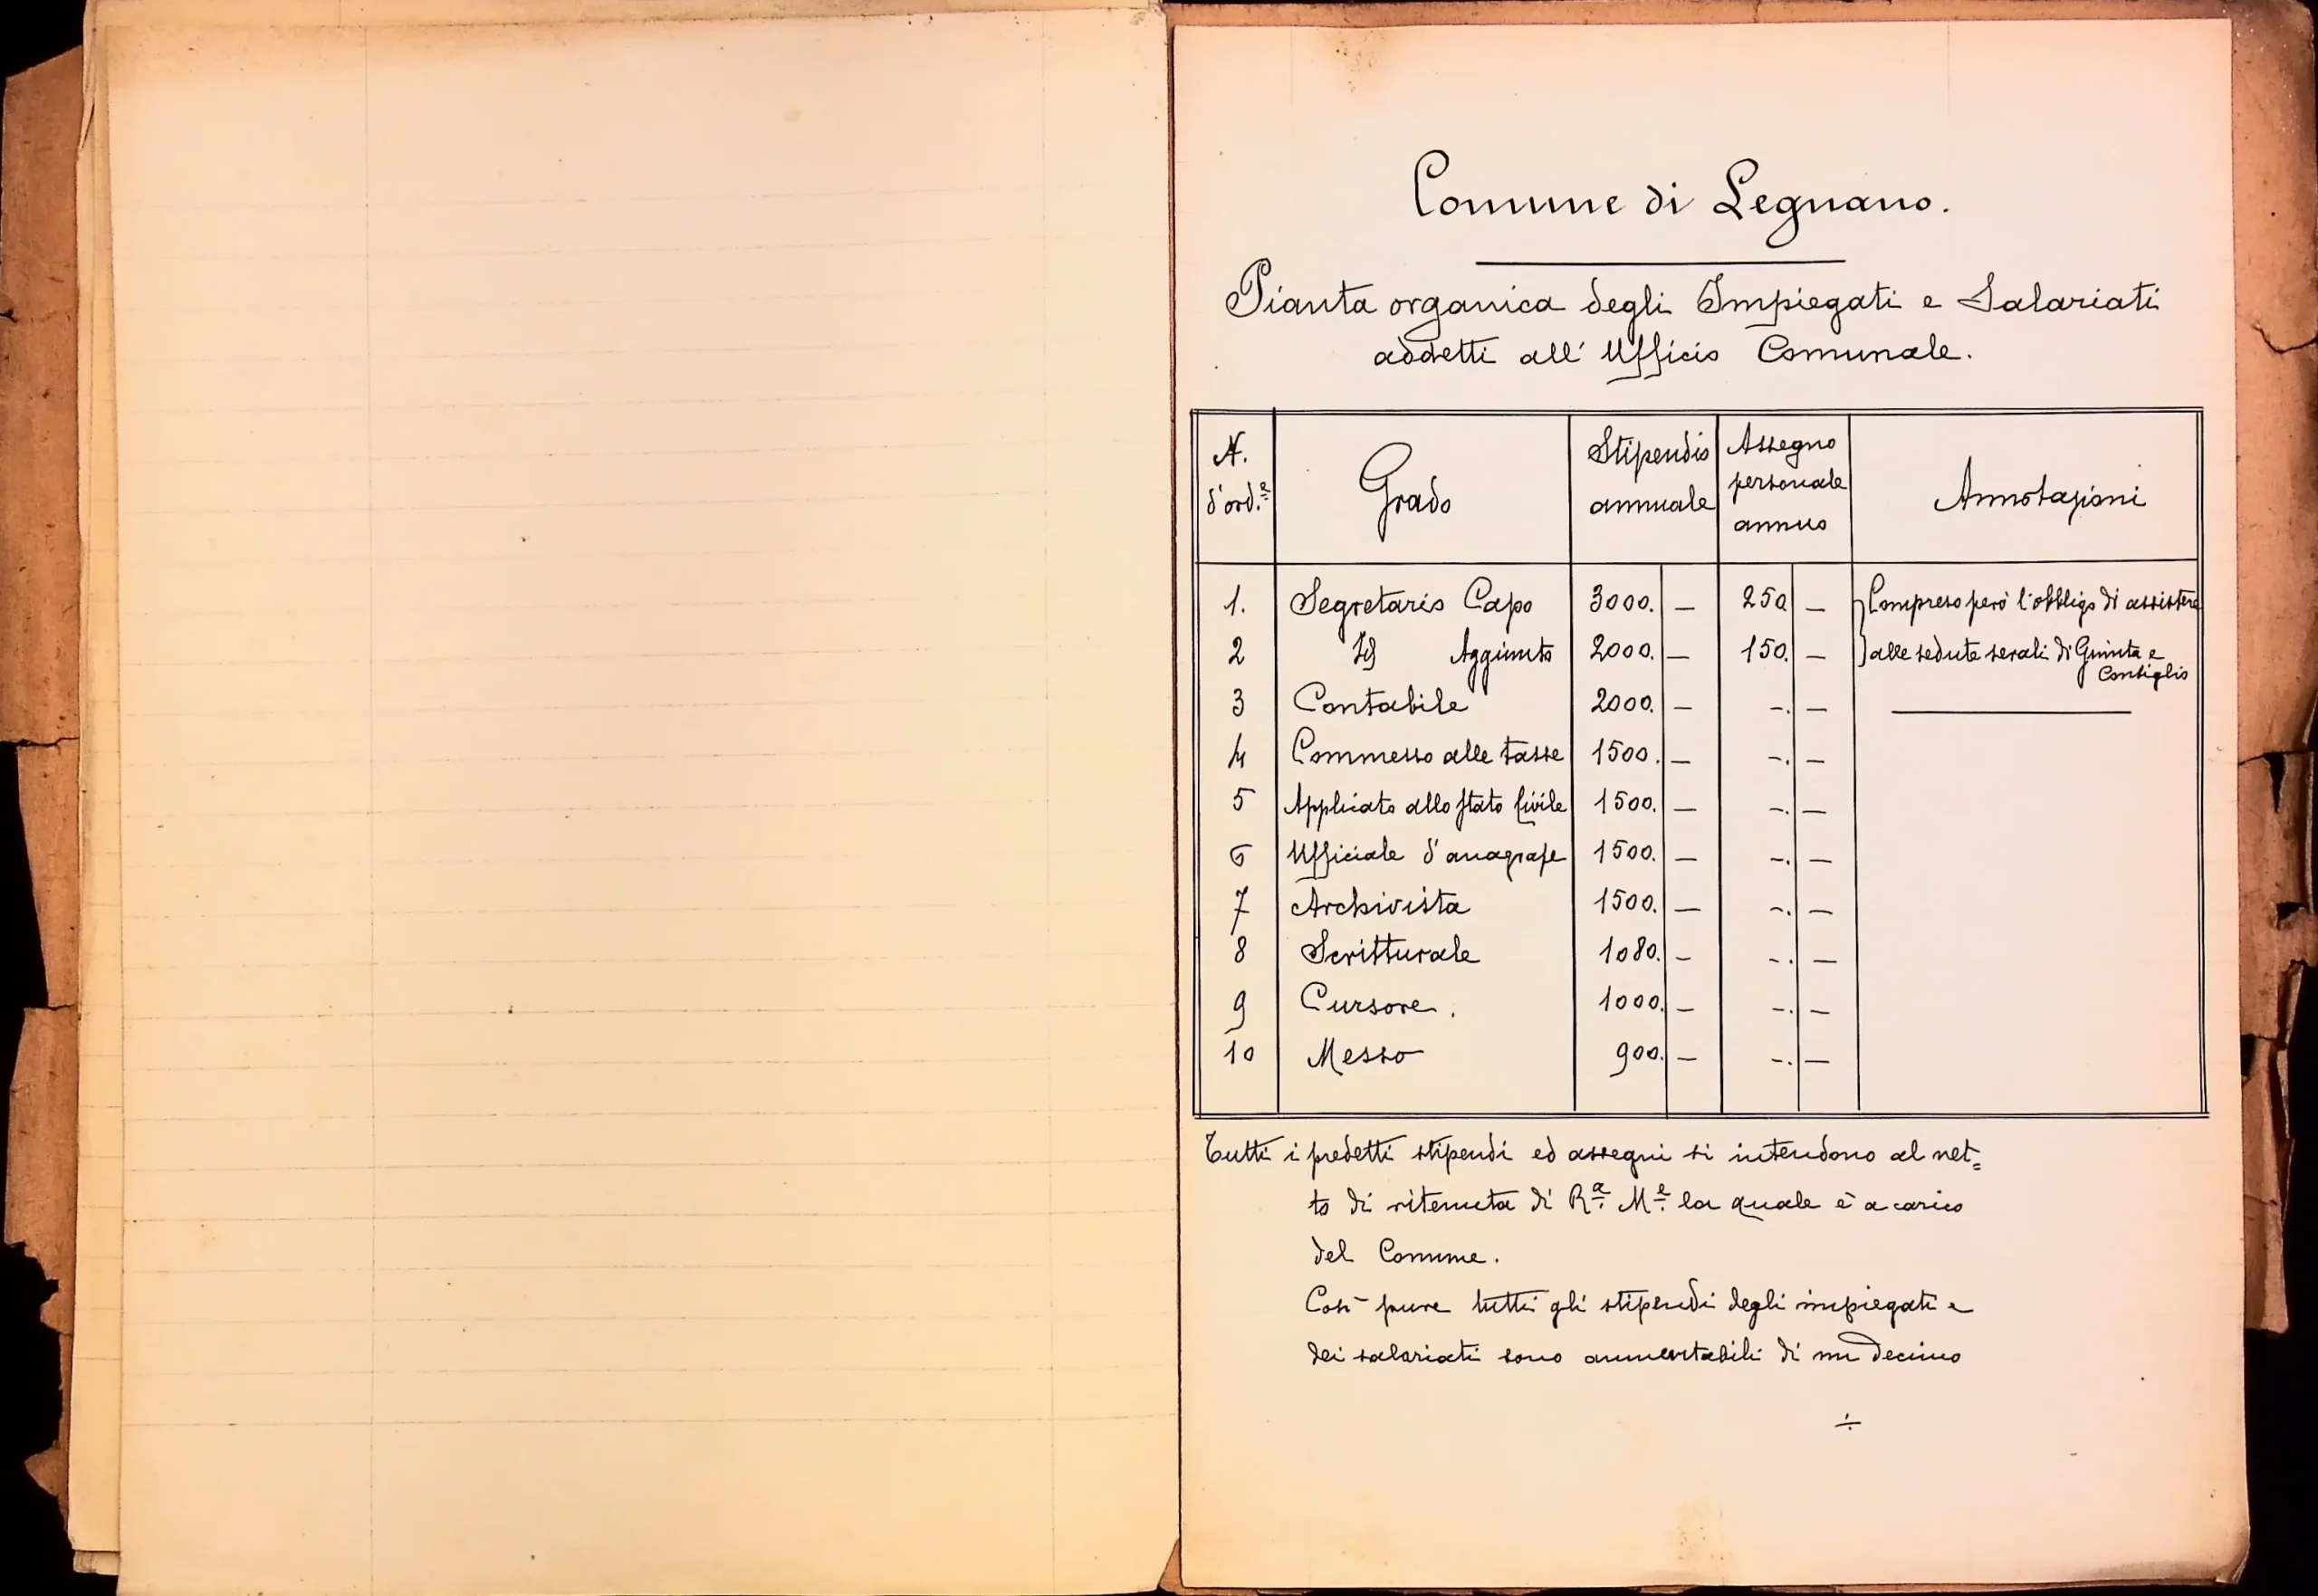 Comune di Legnano.
Pianta organica degli Impiegati e Salariati
addetti all' Ufficio Comunale.
N. d'ord.e Grado Stipendio annuale Assegno personale annuo Annotazioni
1. Segretario Capo 3000. — 250. — Compreso però l'obbligo di assistere
2 Id Aggiunto 2000. — 150. — alle sedute serali di Giunta e Consiglio
3 Contabile 2000. — -. —
4 Commesso alle tasse 1500. — -. —
5 Applicato allo Stato Civile 1500. — -. —
6 Ufficiale d'anagrafe 1500. — -. —
7 Archivista 1500. — -. —
8 Scritturale 1080. — -. —
9 Cursore. 1000. — -. —
10 Messo 900. — -. —
Tutti i predetti stipendi ed assegni si intendono al net=
to di ritenuta di R.a M.e la quale è a carico
del Comune.
Così pure tutti gli stipendi degli impiegati e
dei salariati sono aumentabili di un decimo
÷